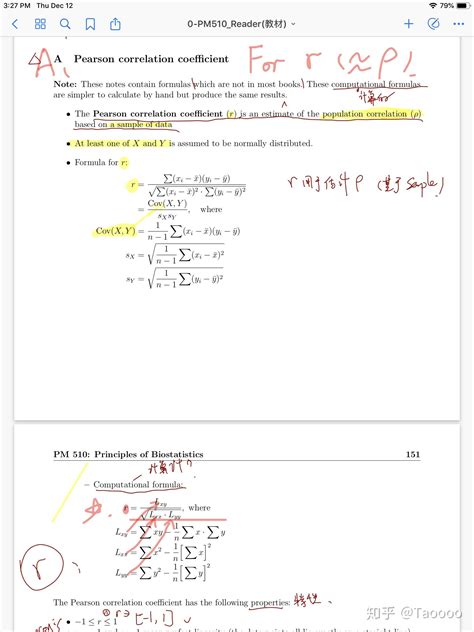 3:27 PM Thu Dec 12
79%
0-PM510_Reader(教材)
A A Pearson correlation coefficient For r (≈ρ)
Note: These notes contain formulas which are not in most books. These computational formulas
are simpler to calculate by hand but produce the same results.
• The Pearson correlation coefficient (r) is an estimate of the population correlation (ρ)
based on a sample of data
• At least one of X and Y is assumed to be normally distributed.
• Formula for r:
r = ∑(xᵢ − x̄)(yᵢ − ȳ) / √(∑(xᵢ − x̄)² · ∑(yᵢ − ȳ)²)
r 用于估计 ρ (基于 Sample)
= Cov(X, Y) / s_X s_Y, where
Cov(X, Y) = 1/(n − 1) ∑(xᵢ − x̄)(yᵢ − ȳ)
s_X = √(1/(n − 1) ∑(xᵢ − x̄)²)
s_Y = √(1/(n − 1) ∑(yᵢ − ȳ)²)
PM 510: Principles of Biostatistics 151
– Computational formula:
r = L_xy / √(L_xx · L_yy), where
L_xy = ∑xy − 1/n ∑x · ∑y
L_xx = ∑x² − 1/n [∑x]²
L_yy = ∑y² − 1/n [∑y]²
r
The Pearson correlation coefficient has the following properties: 特性
• −1 ≤ r ≤ 1 r → [-1, 1]
知乎 @Taoooo